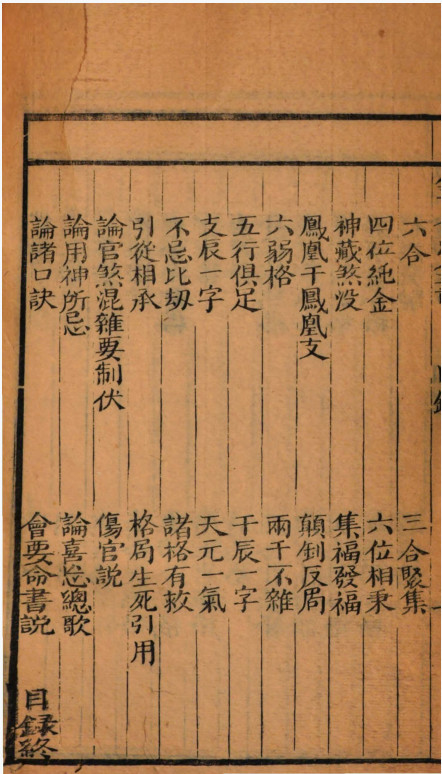 六合 三合聚集
四位純金 六位相秉
神藏煞没 集福發福
鳳凰干鳳凰支 顛釗反局
六弱格 兩干不雜
五行俱足 干辰一字
支辰一字 天元一氣
不忌比刼 諸格有救
引從相承 格局生死引用
論官煞混雜要制伏 傷官説
論用神所忌 論喜忌總歌
論諸口訣 會要命書説 目録終